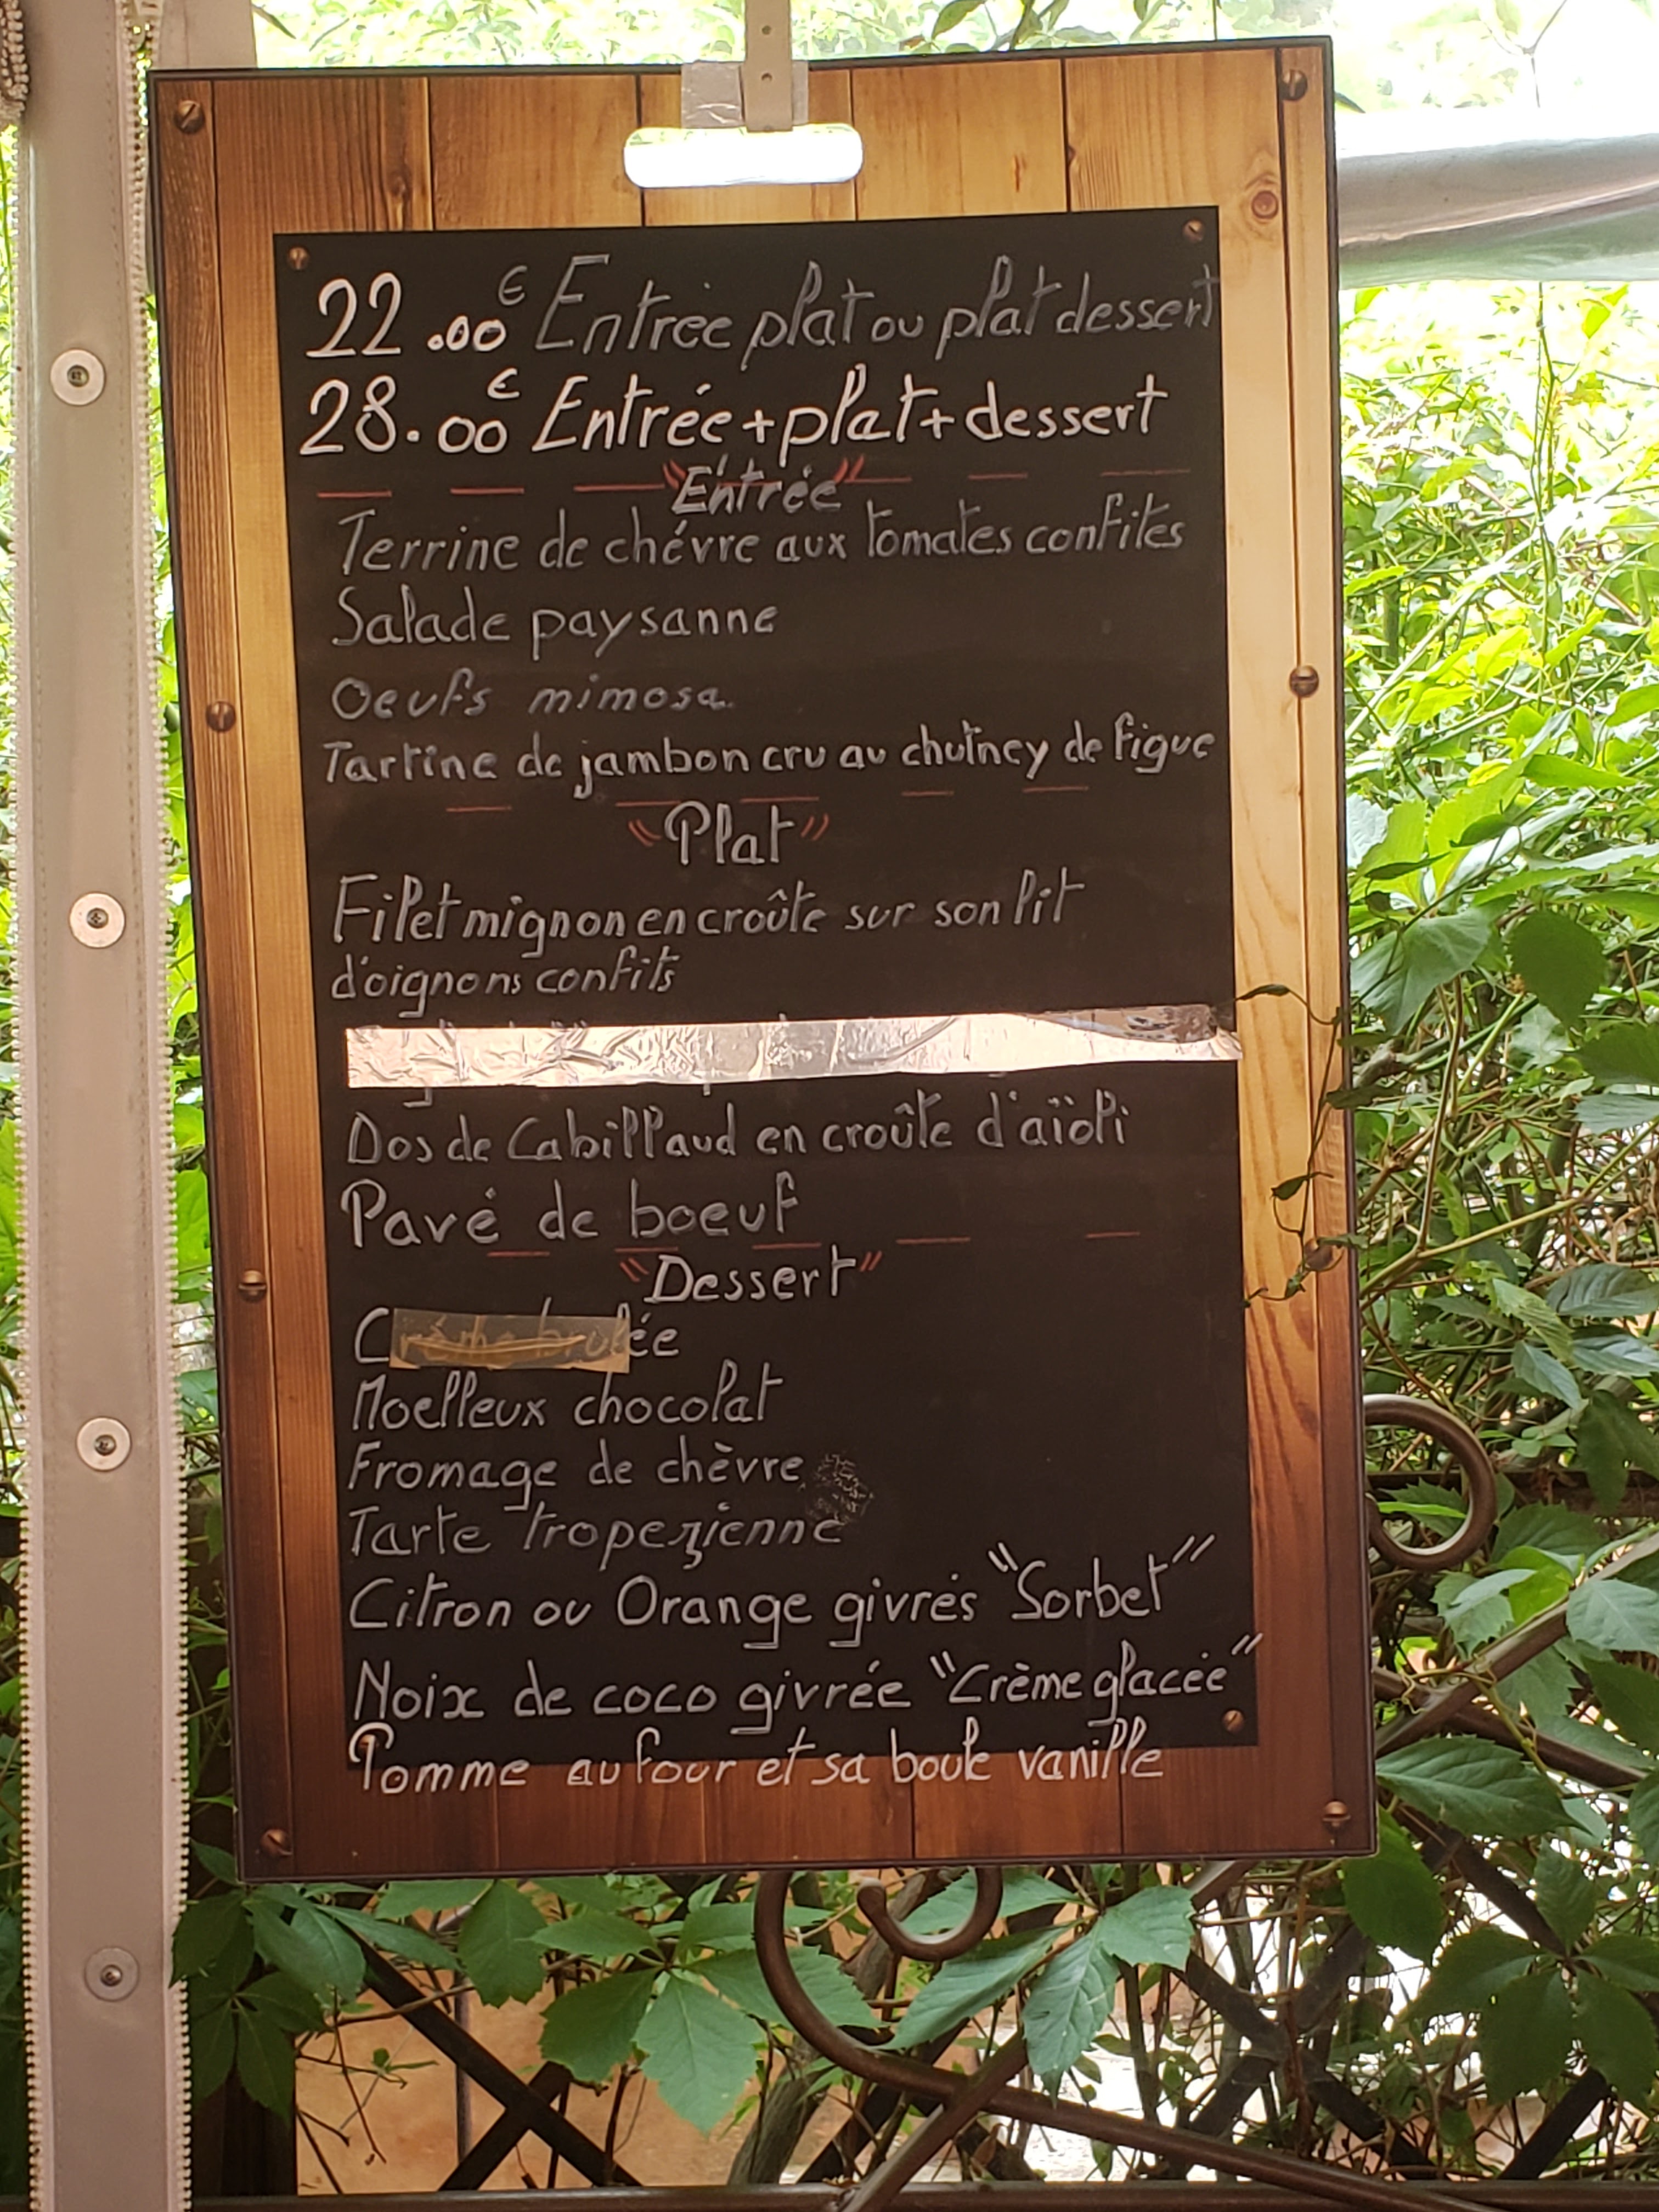 22.00€ Entrée plat ou plat dessert
28.00€ Entrée+plat+dessert
"Entrée"
Terrine de chévre aux tomates confites
Salade paysanne
Oeufs mimosa
Tartine de jambon cru au chutney de figue
"Plat"
Filet mignon en croûte sur son lit
d'oignons confits
Dos de Cabillaud en croûte d'aïoli
Pavé de boeuf
"Dessert"
Crème brulée
Moelleux chocolat
Fromage de chèvre
Tarte tropezienne
Citron ou Orange givrés "Sorbet"
Noix de coco givrée "Crème glacée"
Pomme au four et sa boule vanille